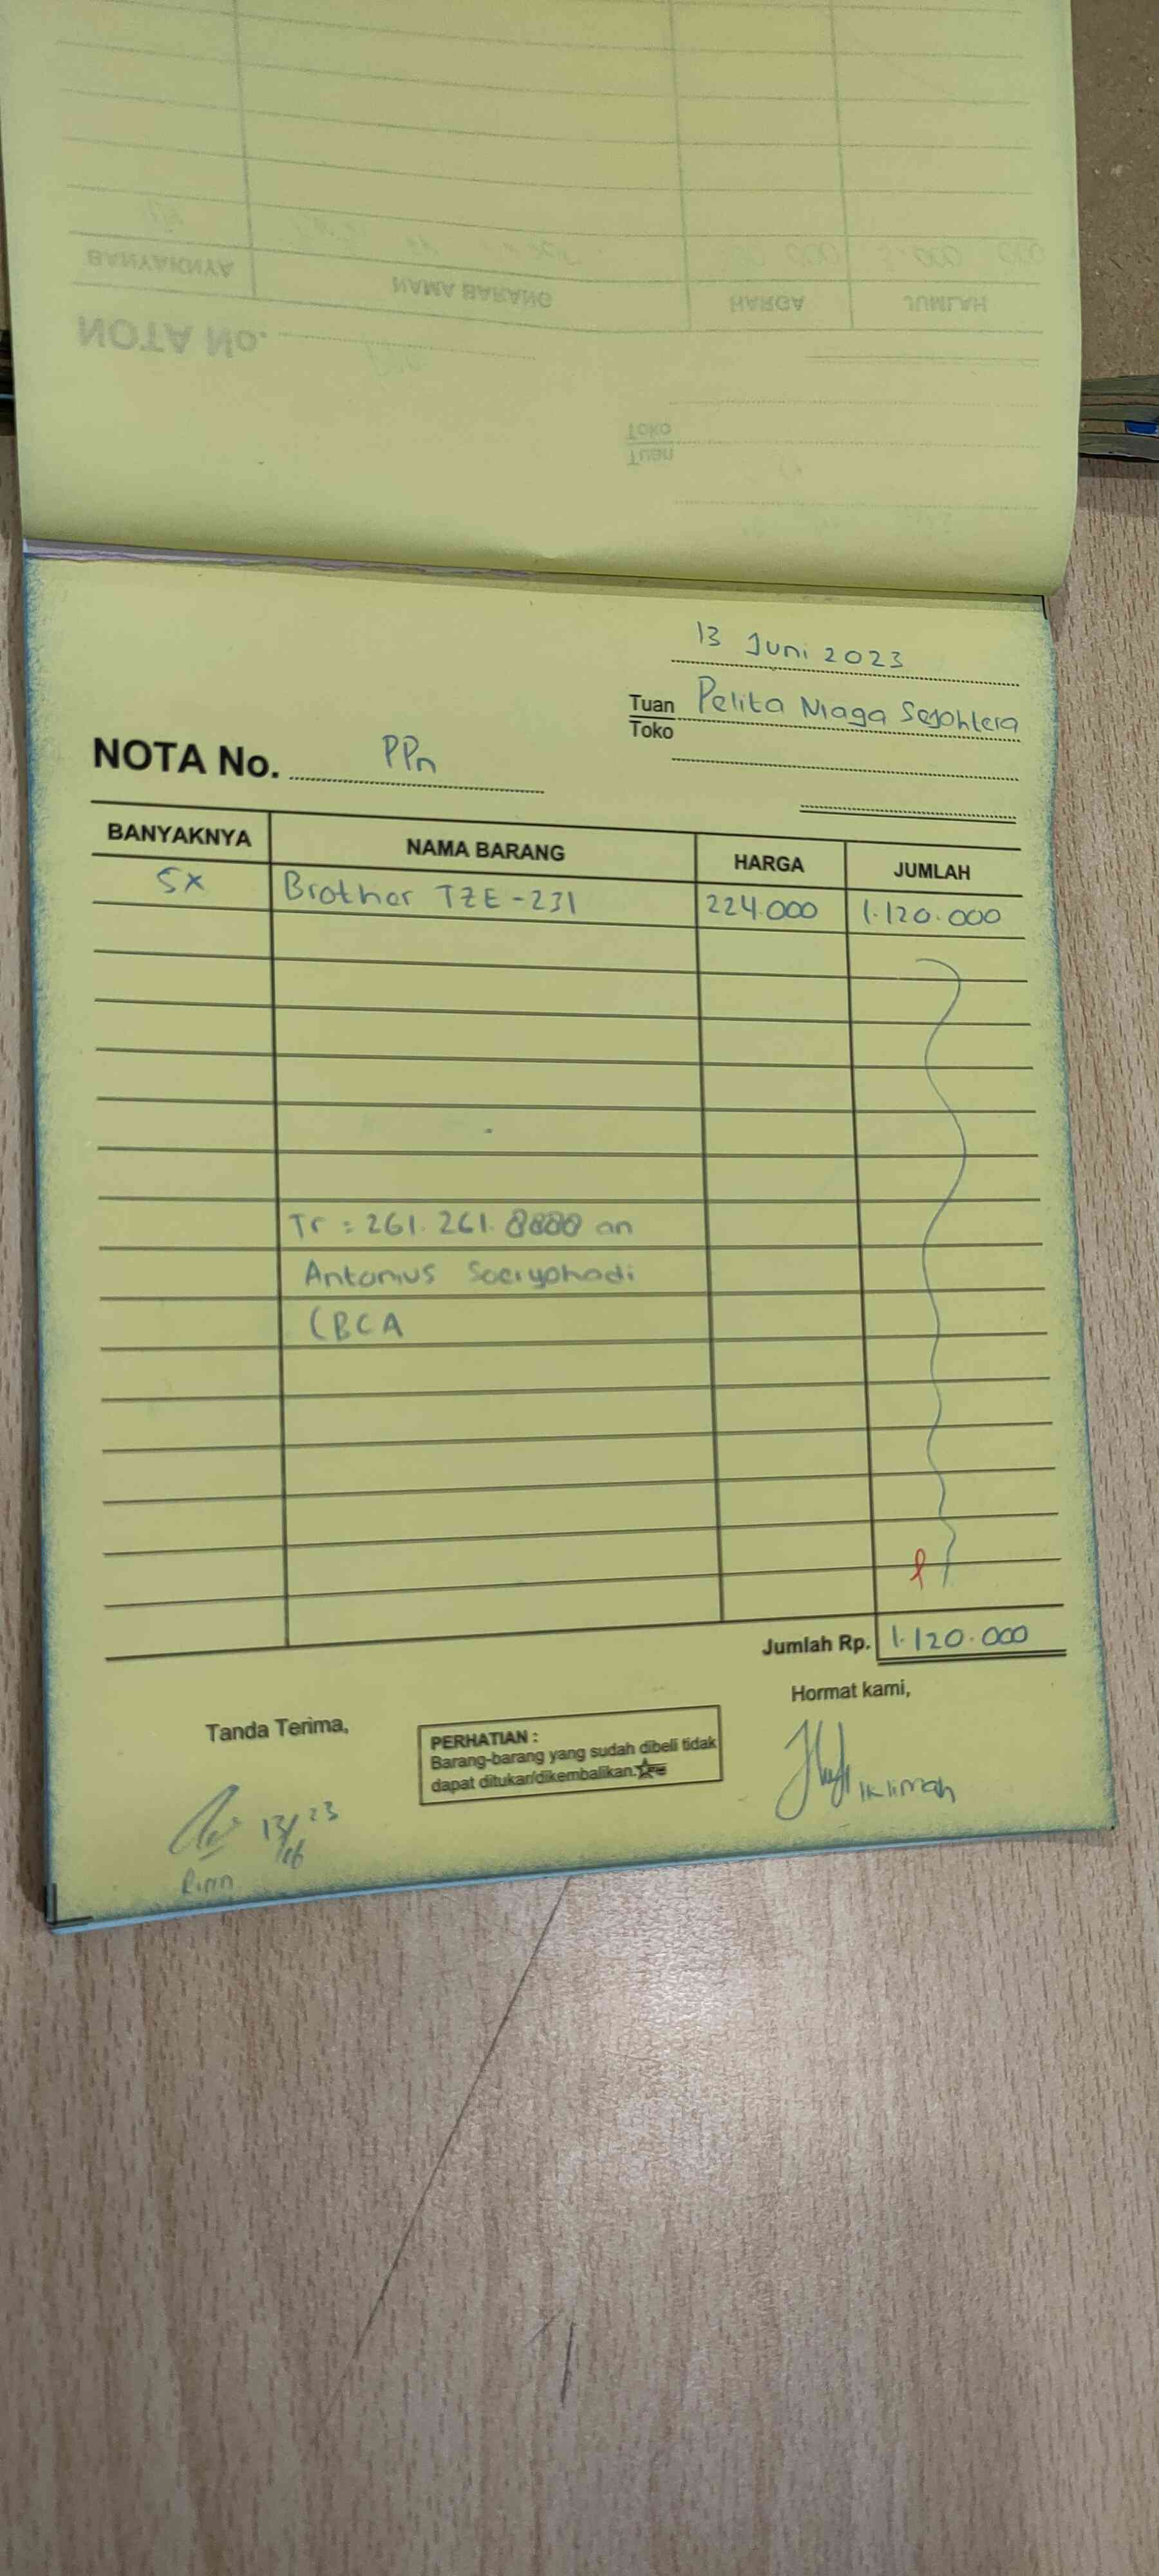 BANYAKNYA NAMA BARANG HARGA JUMLAH
NOTA No.
Toko
Tuan
13 Juni 2023
Tuan Pelita Niaga Sejahtera
Toko
NOTA No. PPn
BANYAKNYA NAMA BARANG HARGA JUMLAH
5x Brother TZE-231 224.000 1.120.000
Tr = 261.261.8888 an
Antonius Soeryohadi
(BCA
Jumlah Rp. 1.120.000
Tanda Terima, Hormat kami,
PERHATIAN :
Barang-barang yang sudah dibeli tidak
dapat ditukar/dikembalikan.
13/06 23
Iklimah